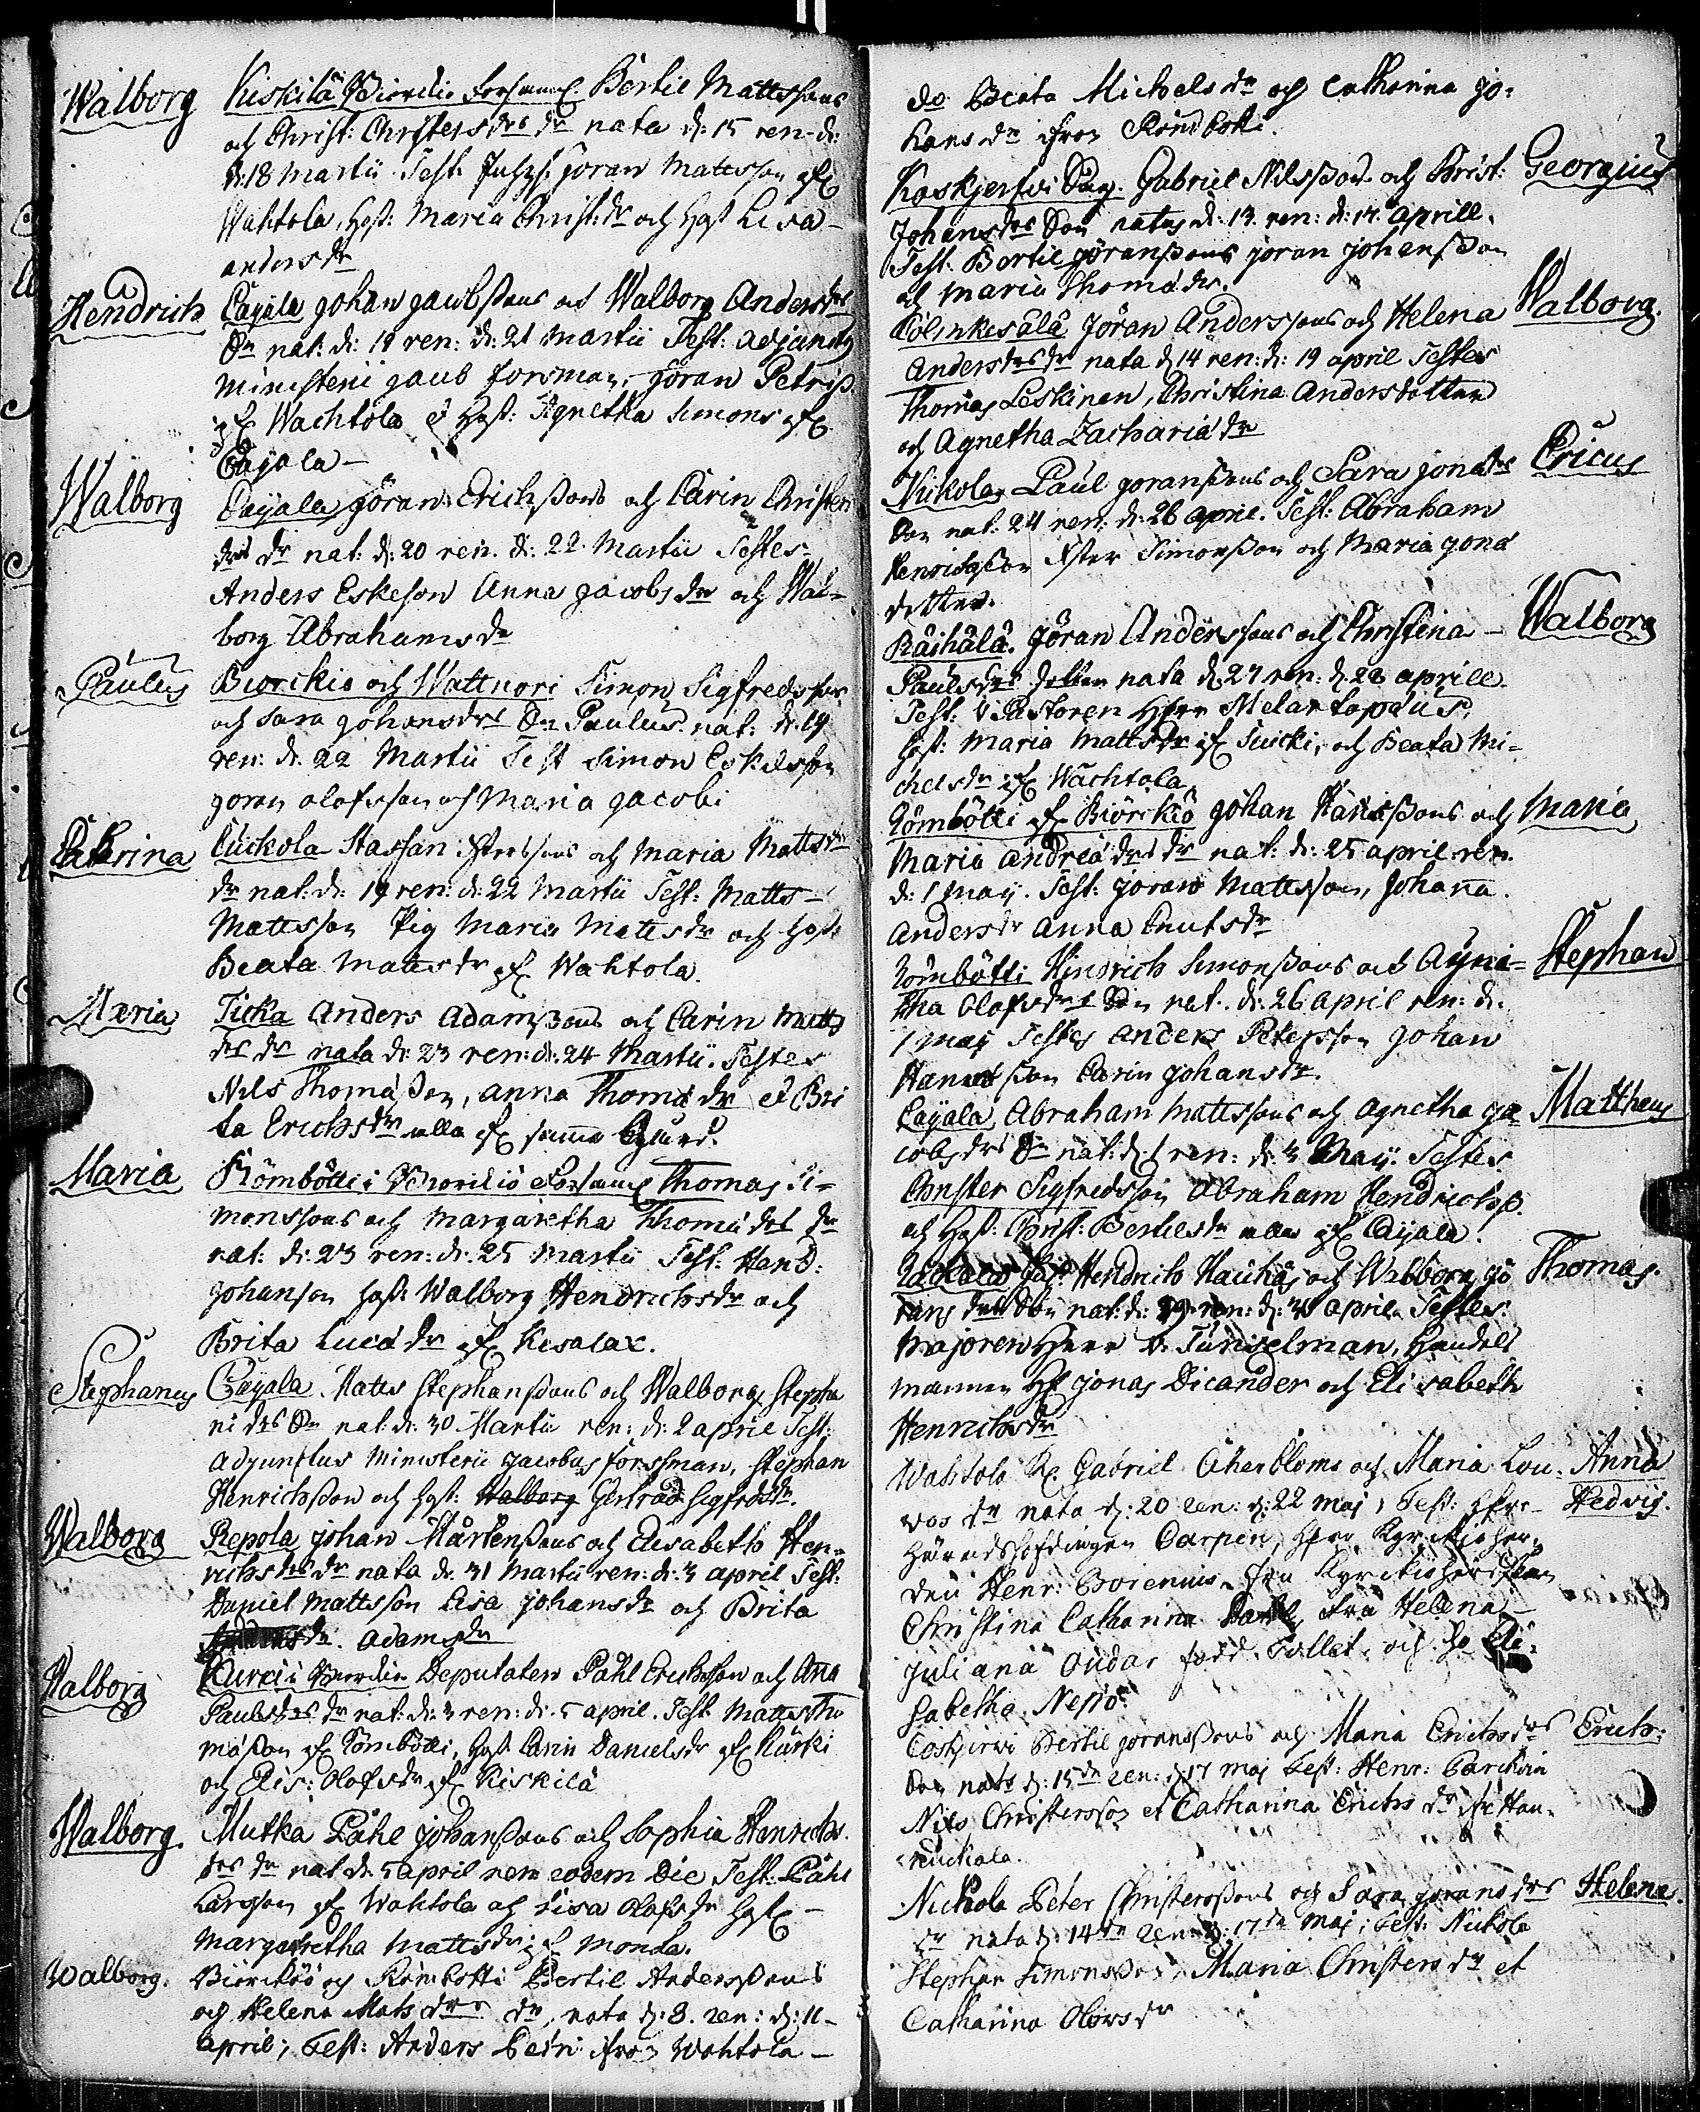 Walborg Kiskilä i Biörckö församl Bertil Mattssons
och Christ: Christersdrs dr nata d: 15 ren. d:
d: 18 Martii Test. Göran Mattsson
Wahtola, Hust: Maria Christ:dr och Hust Lisa
andersdr
Hendrich Cayala Johan Jacobssons och Walborg Andersdrs
Sn nat: d: 19 ren: d: 21 Martii Test: adjunctus
Ministerii Jacob Forsman, Göran Petriss.
Wachtola & Hust: Agnetha Simons
Cayala
Walborg Cayala Göran Erichssons och Carin Christers
drs dr nat: d: 20 ren. d: 22 Martii Testes
Anders Eskeson Anna Jacobsdr och Wal-
borg Abrahamsdr
Paulus Biorckiö och Wattnori Simon Sigfredssons
och Sara Johansdrs Sn Paulus nat: d: 19
ren: d: 22 Martii Test Simon Eskelsson
Göran Olofsson och Maria Jacobi
Catrina Cuckola Staffan och Maria Mattsdrs
dr nat: d: 19 ren: d: 22 Martii Test: Matts
Mattsson Pig Maria Mattsdr och Hust
Beata Mattsdr Wahtola.
Maria Ticka Anders Adamssons och Carin Matts
drs dr nata d: 23 ren: d: 24 Martii. Testes
Nils Thomasson, Anna Thomädr et Bri
ta Erichsdr alla samma
Maria Römbötti i Biorckiö Församl Thomas Si-
monssons och Margaretha Thomädrs dr
nat: d: 23 ren: d: 25 Martii Test: Hend:
Johanson Hust Walborg Hendrichsdr och
Brita Lucädr Kesalax.
Stephanus Cayala Matts Stephanssons och Walborg Stepha
ni drs Sn nat: d: 30 Martii ren: d: 2 april Test:
Adjunctus Ministerii Jacobus Forssman, Stephan
Henrichsson och Hust: Walborg Gertrud Sigfredsdr.
Walborg Repola Johan Mårtenssons och Elisabeth Hen-
richsdrs dr nata d: 31 Martii ren: d: 3 april Test:
Daniel Mattsson Lisa Johansdr och Brita
Adamsdr
Walborg Kurki i Biorckiö Deputaten Påhl Erichsson och Ana
Paulsdrs dr nat: d: 3 ren: d: 5 april. Test. Matts Tho
mässon Römbötti, Hust Carin Danielsdr Kurki
och Lis: Olofsdr Kiskilä
Walborg. Mutka Påhl Johanssons och Sophia Henrichs
drs dr nat d: 5 april ren eodem Die Test: Påhl
Larsson Wahtola och Lisa Olofsdr Hust
Margaretha Mattsdr Monda.
Walborg. Biörckiö och Römbotti Bertil Anderssons
och Helena Matsdrs dr, nata d: 8. ren: d: 11
april; Test: Anders Petri från Wahtola
do Beata Michelsdr och Catharina Jo-
hansdr ifrån Römbotti.
Koskjerfvi Gabriel Nilsson och Christ: Georgius
Johansdrs Son natus d: 13. ren: d: 14. aprill.
Test. Bertil Göranssons Göran Johansson
och Maria Thomädr.
Cölinkesälä Jöran Anderssons och Helena Walborg.
Andersdrs dr nata d 14 ren: d: 19 april Testes
Thomas Leskinen, Christina Andersdotter
och Agnetha Zachariä dr
Nickola Paul Göranssons och Sara Jonädrs Ericus
Son nat: 24 ren: d: 26 april. Test: Abraham
Henrichsson Simonsson och Maria Jonä
dotter.
Räihälä. Jöran Anderssons och Christina Walborg
Paulsdrs dotter nata d: 27 ren: d: 28 aprill.
Test: V Pastoren Herr Melartopæus,
Hust: Maria Mattsdr Suicki, och Beata Mi-
chelsdr Wachtola
Römbötti Biörckiö Johan Hanssons och Maria
Maria Andreädrs dr nat: d: 25 april ren.
d: 1 may. Test: Göran Mattsson, Johana.
Andersdr Anna Cnutsdr
Römbötti Hindrich Simonssons och Agne- Stephan
tha Olofsdrs Son nat. d: 26 april ren: d:
1 maj Testes Anders Petersson Johan
Hansson Carin Johansdr.
Cayala, Abraham Mattssons och Agnetha Ja Matthæus
cobsdrs Sn nat: d: 1 ren: d: 3 Maij. Testes
Christer Sigfredsson Abraham Hendrichss.
och Hust: Christ: Bertilsdr alla Cayala.
Hendrich Haikas och Walborg Jö Thomas.
rans drs Son nat: d: 29 ren: d: 30 april. Testes
Majoren Herr V. Tünselman, Handels
mannen Hr Jonas Dicander och Elisabeth
Henrichsdr
Wahtola Gabriel Åkerbloms och Maria Lou- Anna
vos dr nata d: 20 ren: d: 22 maj, Test: Herr Hedvig.
Häradshöfdingen Carpen, Herr Kyrckioher-
den Henr: Borenius Fru Kyrckioherdskan
Christina Catharina Fru Helena
Juliana Oudar född Tollet, och Eli-
sabetha Nepo
Coskjerwi Bertil Göranssons och Maria Erichsdrs Erich:
Son nata d: 15de ren: d: 17 maj Test: Henr:
Nils Christersson et Catharina Erichs dr Han-
nuckala.
Nickola Peter Christerssons och Sara Göransdrs Helena.
dr nata d: 14de ren: d: 17de Maj; Test: Nickola
Stephan Simonsson, Maria Christersdr et
Catharina Olovsdr